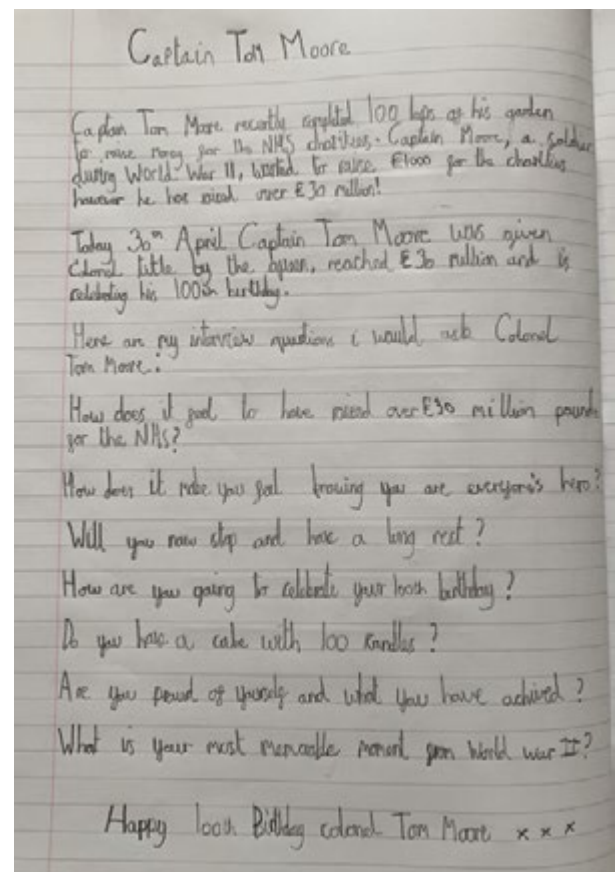 Captain Tom Moore
Captain Tom Moore recently completed 100 laps of his garden
to raise money for the NHS charities. Captain Moore, a soldier
during World War II, wanted to raise £1000 for the charities
however he has raised over £30 million!
Today 30th April Captain Tom Moore was given
Colonel title by the queen, reached £30 million and is
celebrating his 100th birthday.
Here are my interview questions i would ask Colonel
Tom Moore:
How does it feel to have raised over £30 million pounds
for the NHS?
How does it make you feel knowing you are everyone's hero?
Will you now stop and have a long rest?
How are you going to celebrate your 100th birthday?
Do you have a cake with 100 kandles?
Are you proud of yourself and what you have achived?
What is your most moment from World war II?
Happy 100th Birthday colonel Tom Moore x x x